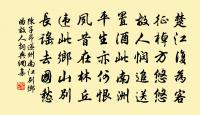 楚江復為客
征棹方悠悠
故人憫追送
置酒此南洲
平生亦何恨
夙昔在林丘
違此鄉山別
長謠去國愁
陳子昂遂州南江別鄉
曲故人詞典網集